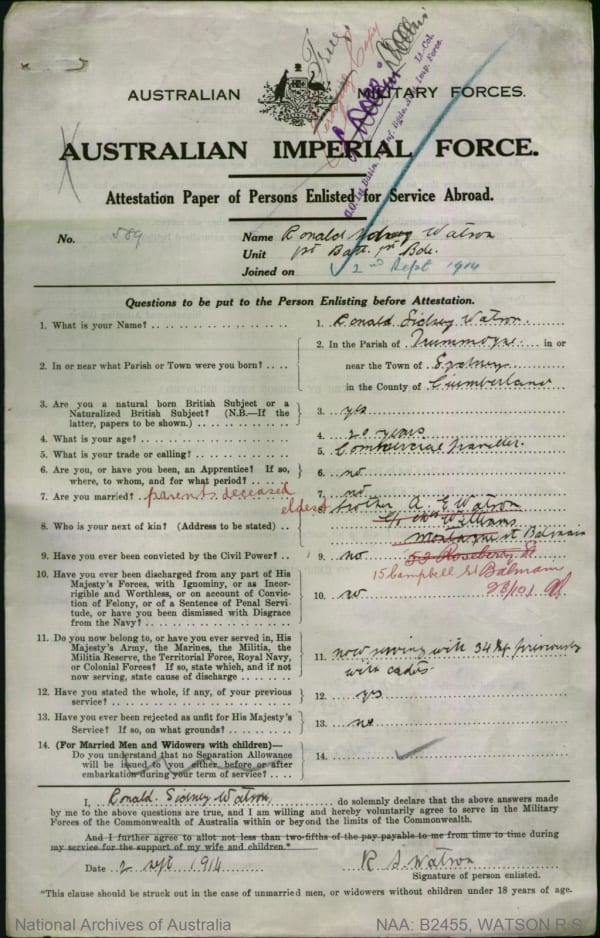 AUSTRALIAN MILITARY FORCES.
AUSTRALIAN IMPERIAL FORCE.
Attestation Paper of Persons Enlisted for Service Abroad.
No. 589
Name Ronald Sidney Watson
Unit 1st Batt. 1st Bde.
Joined on 2nd Sept 1914
Questions to be put to the Person Enlisting before Attestation.
1. What is your Name? 1. Ronald Sidney Watson
2. In or near what Parish or Town were you born? 2. In the Parish of Drummoyne in or
near the Town of Sydney
in the County of Cumberland
3. Are you a natural born British Subject or a
Naturalized British Subject? (N.B.—If the
latter, papers to be shown.) 3. yes
4. What is your age? 4. 20 years
5. What is your trade or calling? 5. Commercial traveller.
6. Are you, or have you been, an Apprentice? If so,
where, to whom, and for what period? 6. no
7. Are you married? parents deceased 7. no
8. Who is your next of kin? (Address to be stated) eldest 8. brother A. E. Watson
c/o Mrs Williams
Montague st Balmain
15 Campbell St Balmain
9. Have you ever been convicted by the Civil Power? 9. no
10. Have you ever been discharged from any part of His
Majesty's Forces, with Ignominy, or as Incor-
rigible and Worthless, or on account of Convic-
tion of Felony, or of a Sentence of Penal Servi-
tude, or have you been Dismissed with Disgrace
from the Navy? 10. no
11. Do you now belong to, or have you ever served in, His
Majesty's Army, the Marines, the Militia, the
Militia Reserve, the Territorial Force, Royal Navy,
or Colonial Forces? If so, state which, and if not
now serving, state cause of discharge 11. now serving with 34th previously
with cadets
12. Have you stated the whole, if any, of your previous
service? 12. yes
13. Have you ever been rejected as unfit for His Majesty's
Service? If so, on what grounds? 13. no
14. (For Married Men and Widowers with children)—
Do you understand that no Separation Allowance
will be issued to you either before or after
embarkation during your term of service? 14.
I, Ronald Sidney Watson do solemnly declare that the above answers made
by me to the above questions are true, and I am willing and hereby voluntarily agree to serve in the Military
Forces of the Commonwealth of Australia within or beyond the limits of the Commonwealth.
And I further agree to allot not less than two-fifths of the pay payable to me from time to time during
my service for the support of my wife and children.*
Date 2 Sept 1914 R S Watson
Signature of person enlisted.
*This clause should be struck out in the case of unmarried men, or widowers without children under 18 years of age.
National Archives of Australia NAA: B2455, WATSON R S